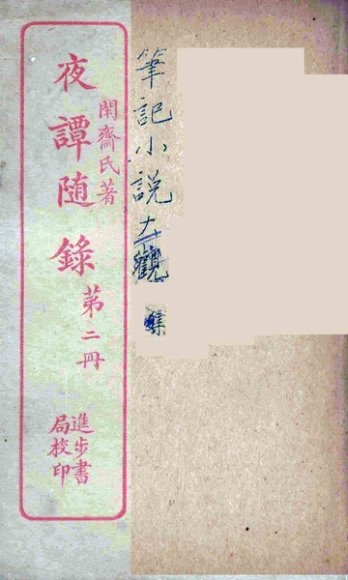 筆記小説大觀
閑齋氏著
夜譚随錄
第二冊
進步書
局校印